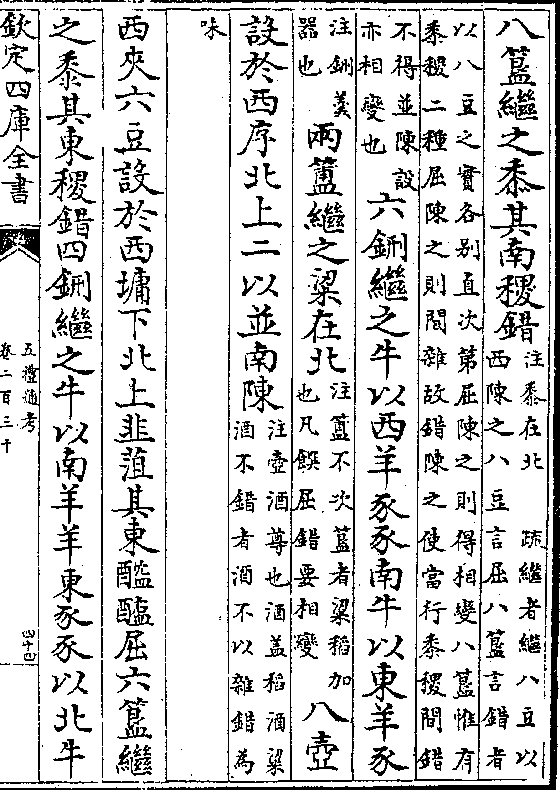 八簋繼之黍其南稷錯注黍在北　疏繼者繼八豆以
西陳之八豆言屈八簋言錯者
以八豆之實各别直次第屈陳之則得相變八簋惟有
黍稷二種屈陳之則間雜故錯陳之使當行黍稷間錯
不得並陳設
亦相變也
六鉶繼之牛以西羊豕豕南牛以東羊豕
注鉶羹
器也
兩簠繼之粱在北注簠不次簋者粱稻加
也凡饌屈錯要相變
八壺
設於西序北上二以並南陳注壺酒尊也酒盖稻酒粱
酒不錯者酒不以雜錯為
味
西夾六豆設於西墉下北上韭菹其東醓醢屈六簋繼
之黍其東稷錯四鉶繼之牛以南羊羊東豕豕以北牛
欽定四庫全書
五禮通考
卷二百三十
四十四